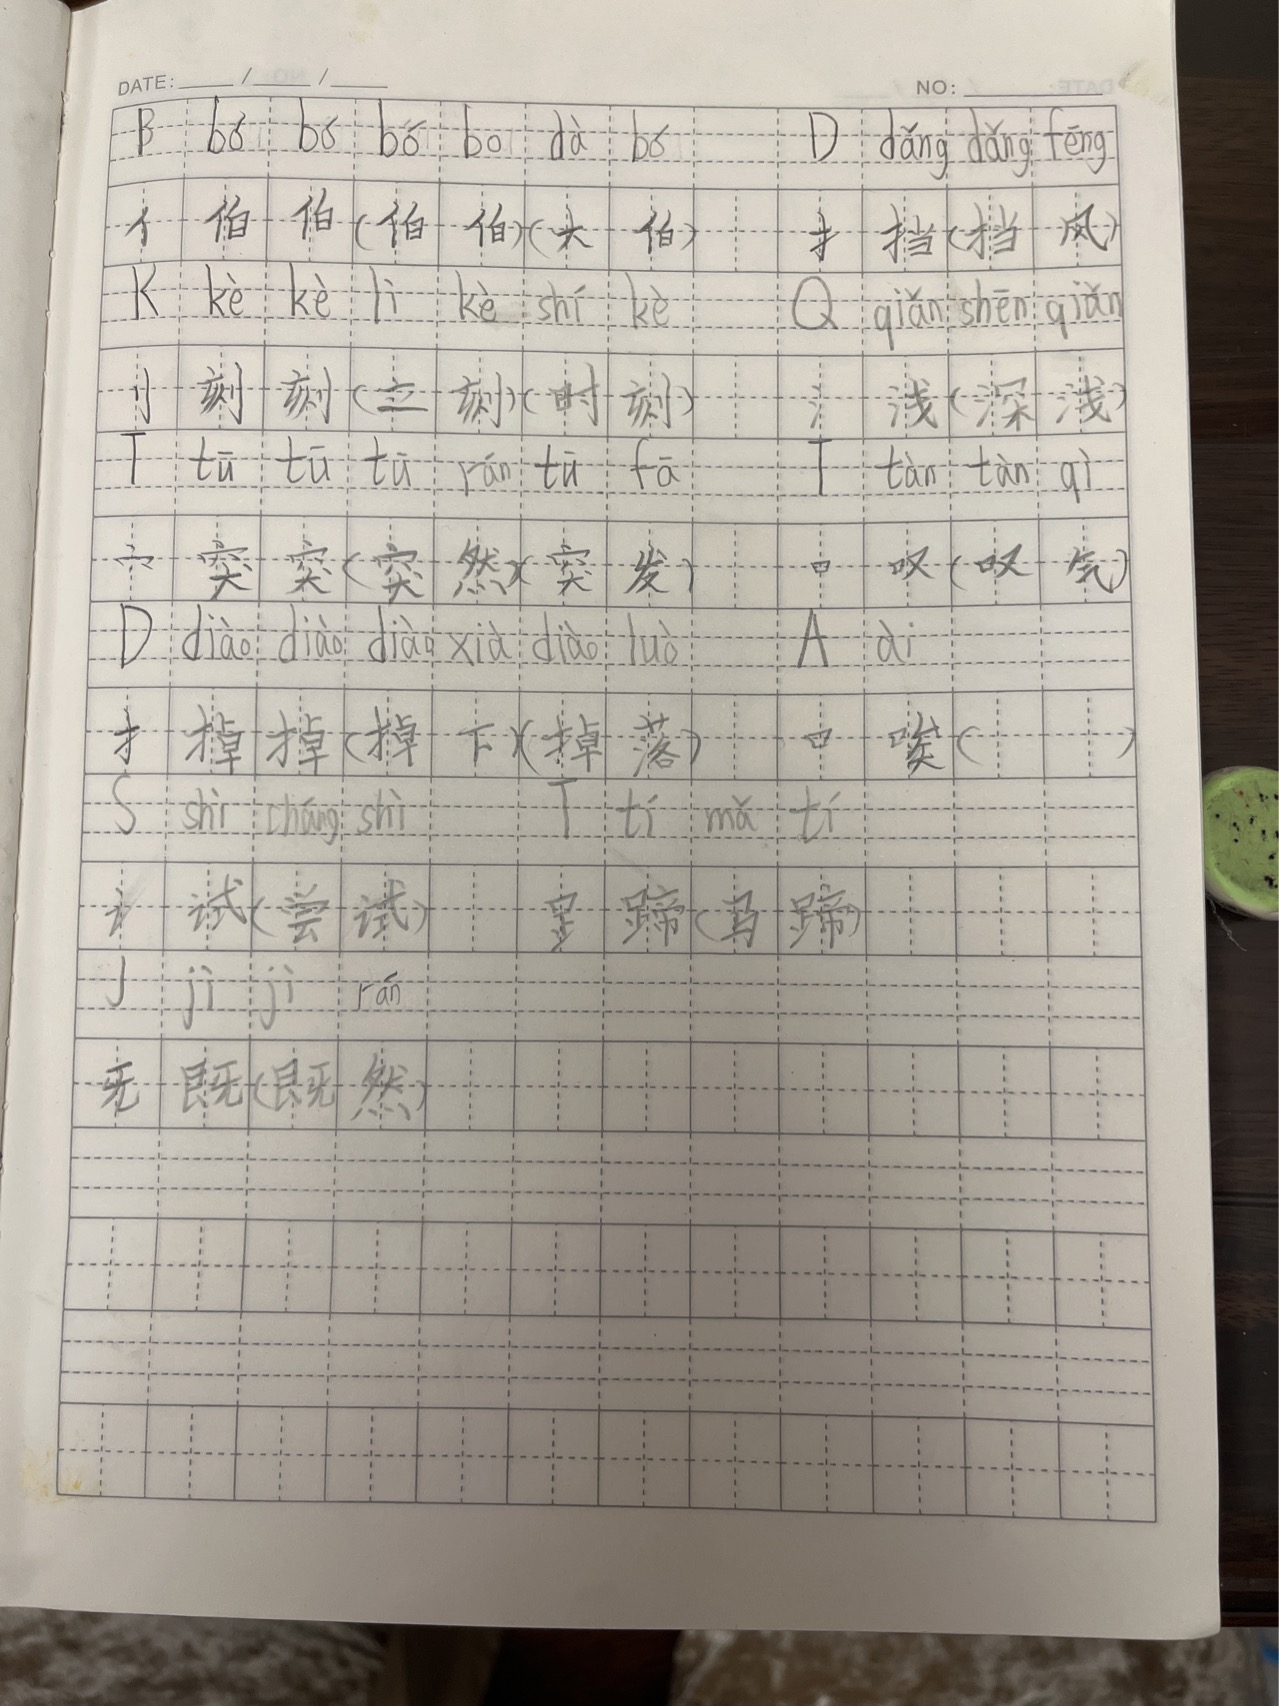 DATE: / / NO:
B bó bó bó bo dà bó D dǎng dǎng fēng
亻 伯 伯 (伯 伯) (大 伯) 扌 挡 (挡 风)
K kè kè lì kè shí kè Q qiǎn shēn qiǎn
刂 刻 刻 (立 刻) (时 刻) 氵 浅 (深 浅)
T tū tū tū rán tū fā T tàn tàn qì
穴 突 突 (突 然) (突 发) 口 叹 (叹 气)
D diào diào diào xià diào luò A ài
扌 掉 掉 (掉 下) (掉 落) 口 唉 ( )
S shì cháng shì T tí mǎ tí
讠 试 (尝 试) 𧾷 蹄 (马 蹄)
J jì jì rán
旡 既 (既 然)